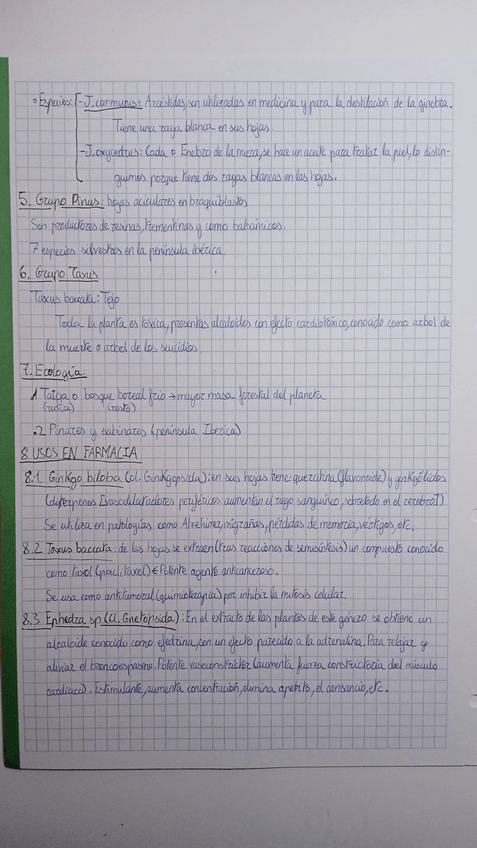 o Especies: - J. communis: Arcéstidas, son utilizadas en medicina y para la destilación de la ginebra.
Tiene una raya blanca en sus hojas
- J. oxycedrus: Cada o Enebro de la miera, se hace un aceite para tratar la piel, lo distin-
guimos porque tiene dos rayas blancas en las hojas.
5. Grupo Pinus: hojas aciculares en braquiblastos
Son productores de resinas, trementinas y como balsámicos.
7 especies silvestres en la península ibérica
6. Grupo Taxus
Taxus baccata: Tejo
Toda la planta es tóxica, presentas alcaloides con efecto cardiotóxico, conocido como arbol de
la muerte o arbol de los suicidios
7. Ecología:
1 Taiga o bosque boreal frío → mayor masa forestal del planeta
(rusia) (resto)
.2 Pinares y sabinares (península Iberica)
8 USOS EN FARMACIA
8.1. Ginkgo biloba (cl. Ginkgopsida): en sus hojas tiene: quercitina (flavonoide) y ginkgólidos
(diterpenos [vasodilatadores periféricos aumentan el riego sanguíneo, sobretodo en el cerebro])
Se utiliza en patologías como Alzehimer, migrañas, pérdidas de memoria, vértigos, etc.
8.2 Taxus baccata: de las hojas se extraen (tras reacciones de semisíntesis) un compuesto conocido
como taxol (paclitaxel) ← Potente agente anticanceroso.
Se usa como antitumoral (quimioterapia) por inhibir la mitosis celular.
8.3 Ephedra sp (cl. Gnetopsida): En el extracto de las plantas de este género se obtiene un
alcaloide conocido como efedrina, con un efecto parecido a la adrenalina. Para relajar y
aliviar el broncoespasmo. Potente vasoconstrictor (aumenta fuerza constrictoria del músculo
cardíaco). Estimulante, aumenta concentración, elimina apetito, el cansancio, etc.